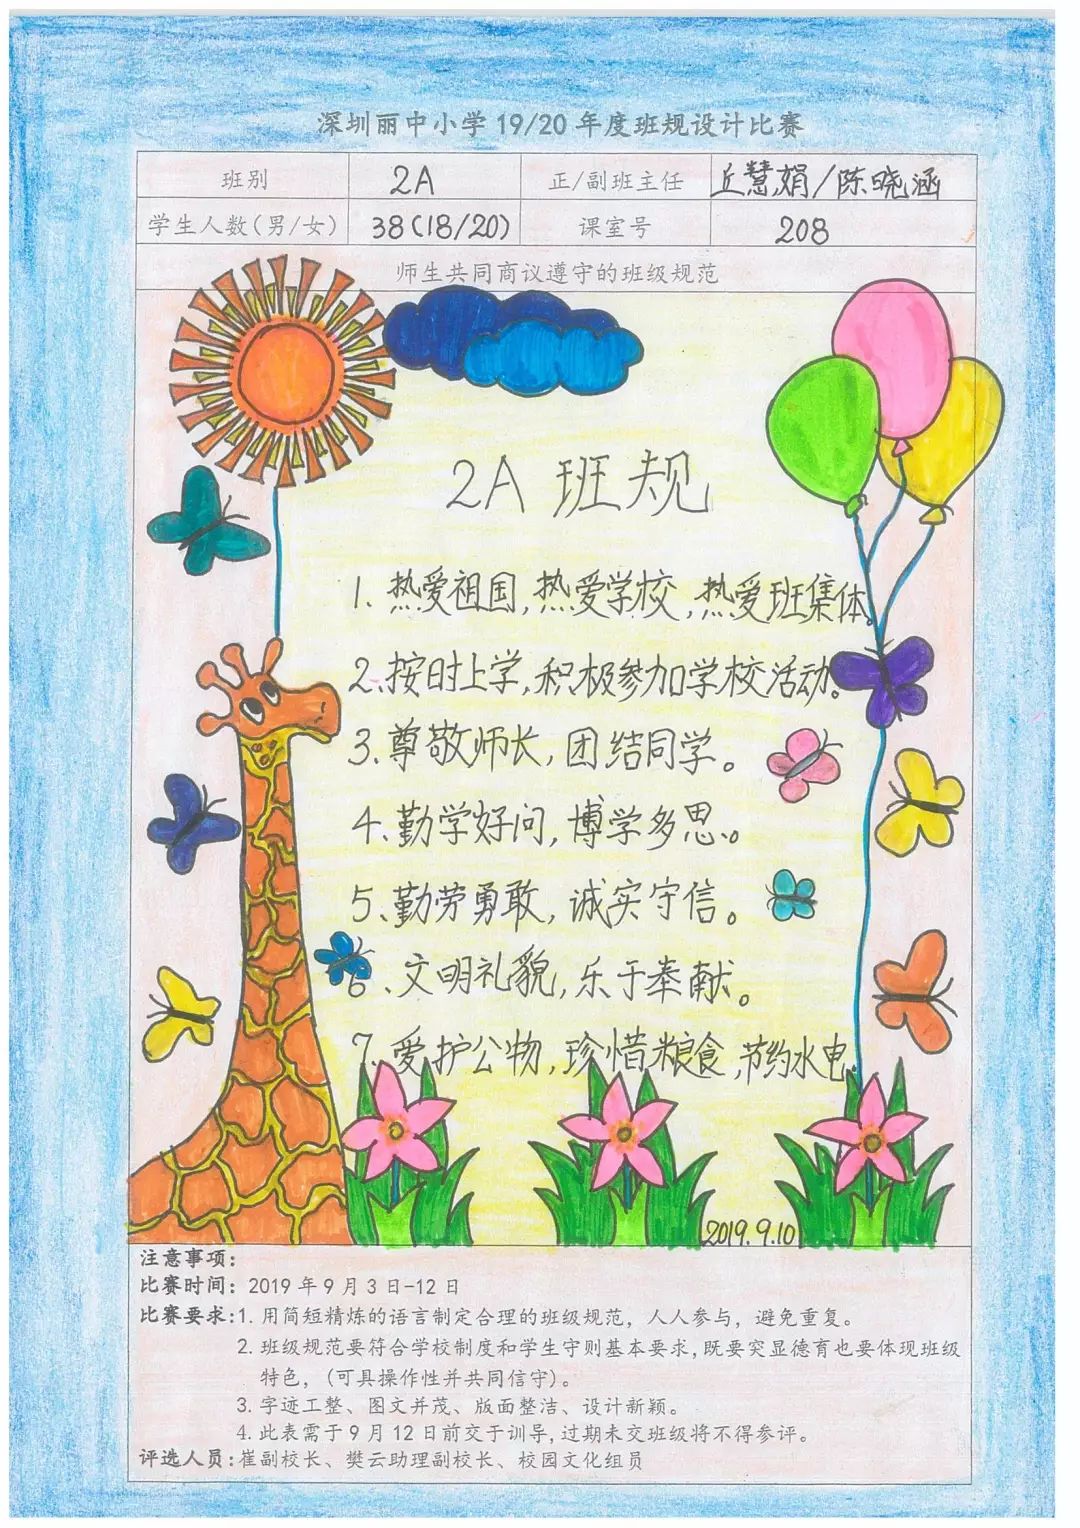 深圳丽中小学 19/20 年度班规设计比赛
班别 2A 正/副班主任 丘慧娟/陈晓涵
学生人数(男/女) 38(18/20) 课室号 208
师生共同商议遵守的班级规范
2A 班规
1、热爱祖国,热爱学校,热爱班集体。
2、按时上学,积极参加学校活动。
3、尊敬师长,团结同学。
4、勤学好问,博学多思。
5、勤劳勇敢,诚实守信。
6、文明礼貌,乐于奉献。
7、爱护公物,珍惜粮食,节约水电。
2019.9.10
注意事项:
比赛时间: 2019 年 9 月 3 日-12 日
比赛要求:1. 用简短精炼的语言制定合理的班级规范，人人参与，避免重复。
2. 班级规范要符合学校制度和学生守则基本要求,既要突显德育也要体现班级
特色，(可具操作性并共同信守)。
3. 字迹工整、图文并茂、版面整洁、设计新颖。
4. 此表需于 9 月 12 日前交于训导,过期未交班级将不得参评。
评选人员:崔副校长、樊云助理副校长、校园文化组员